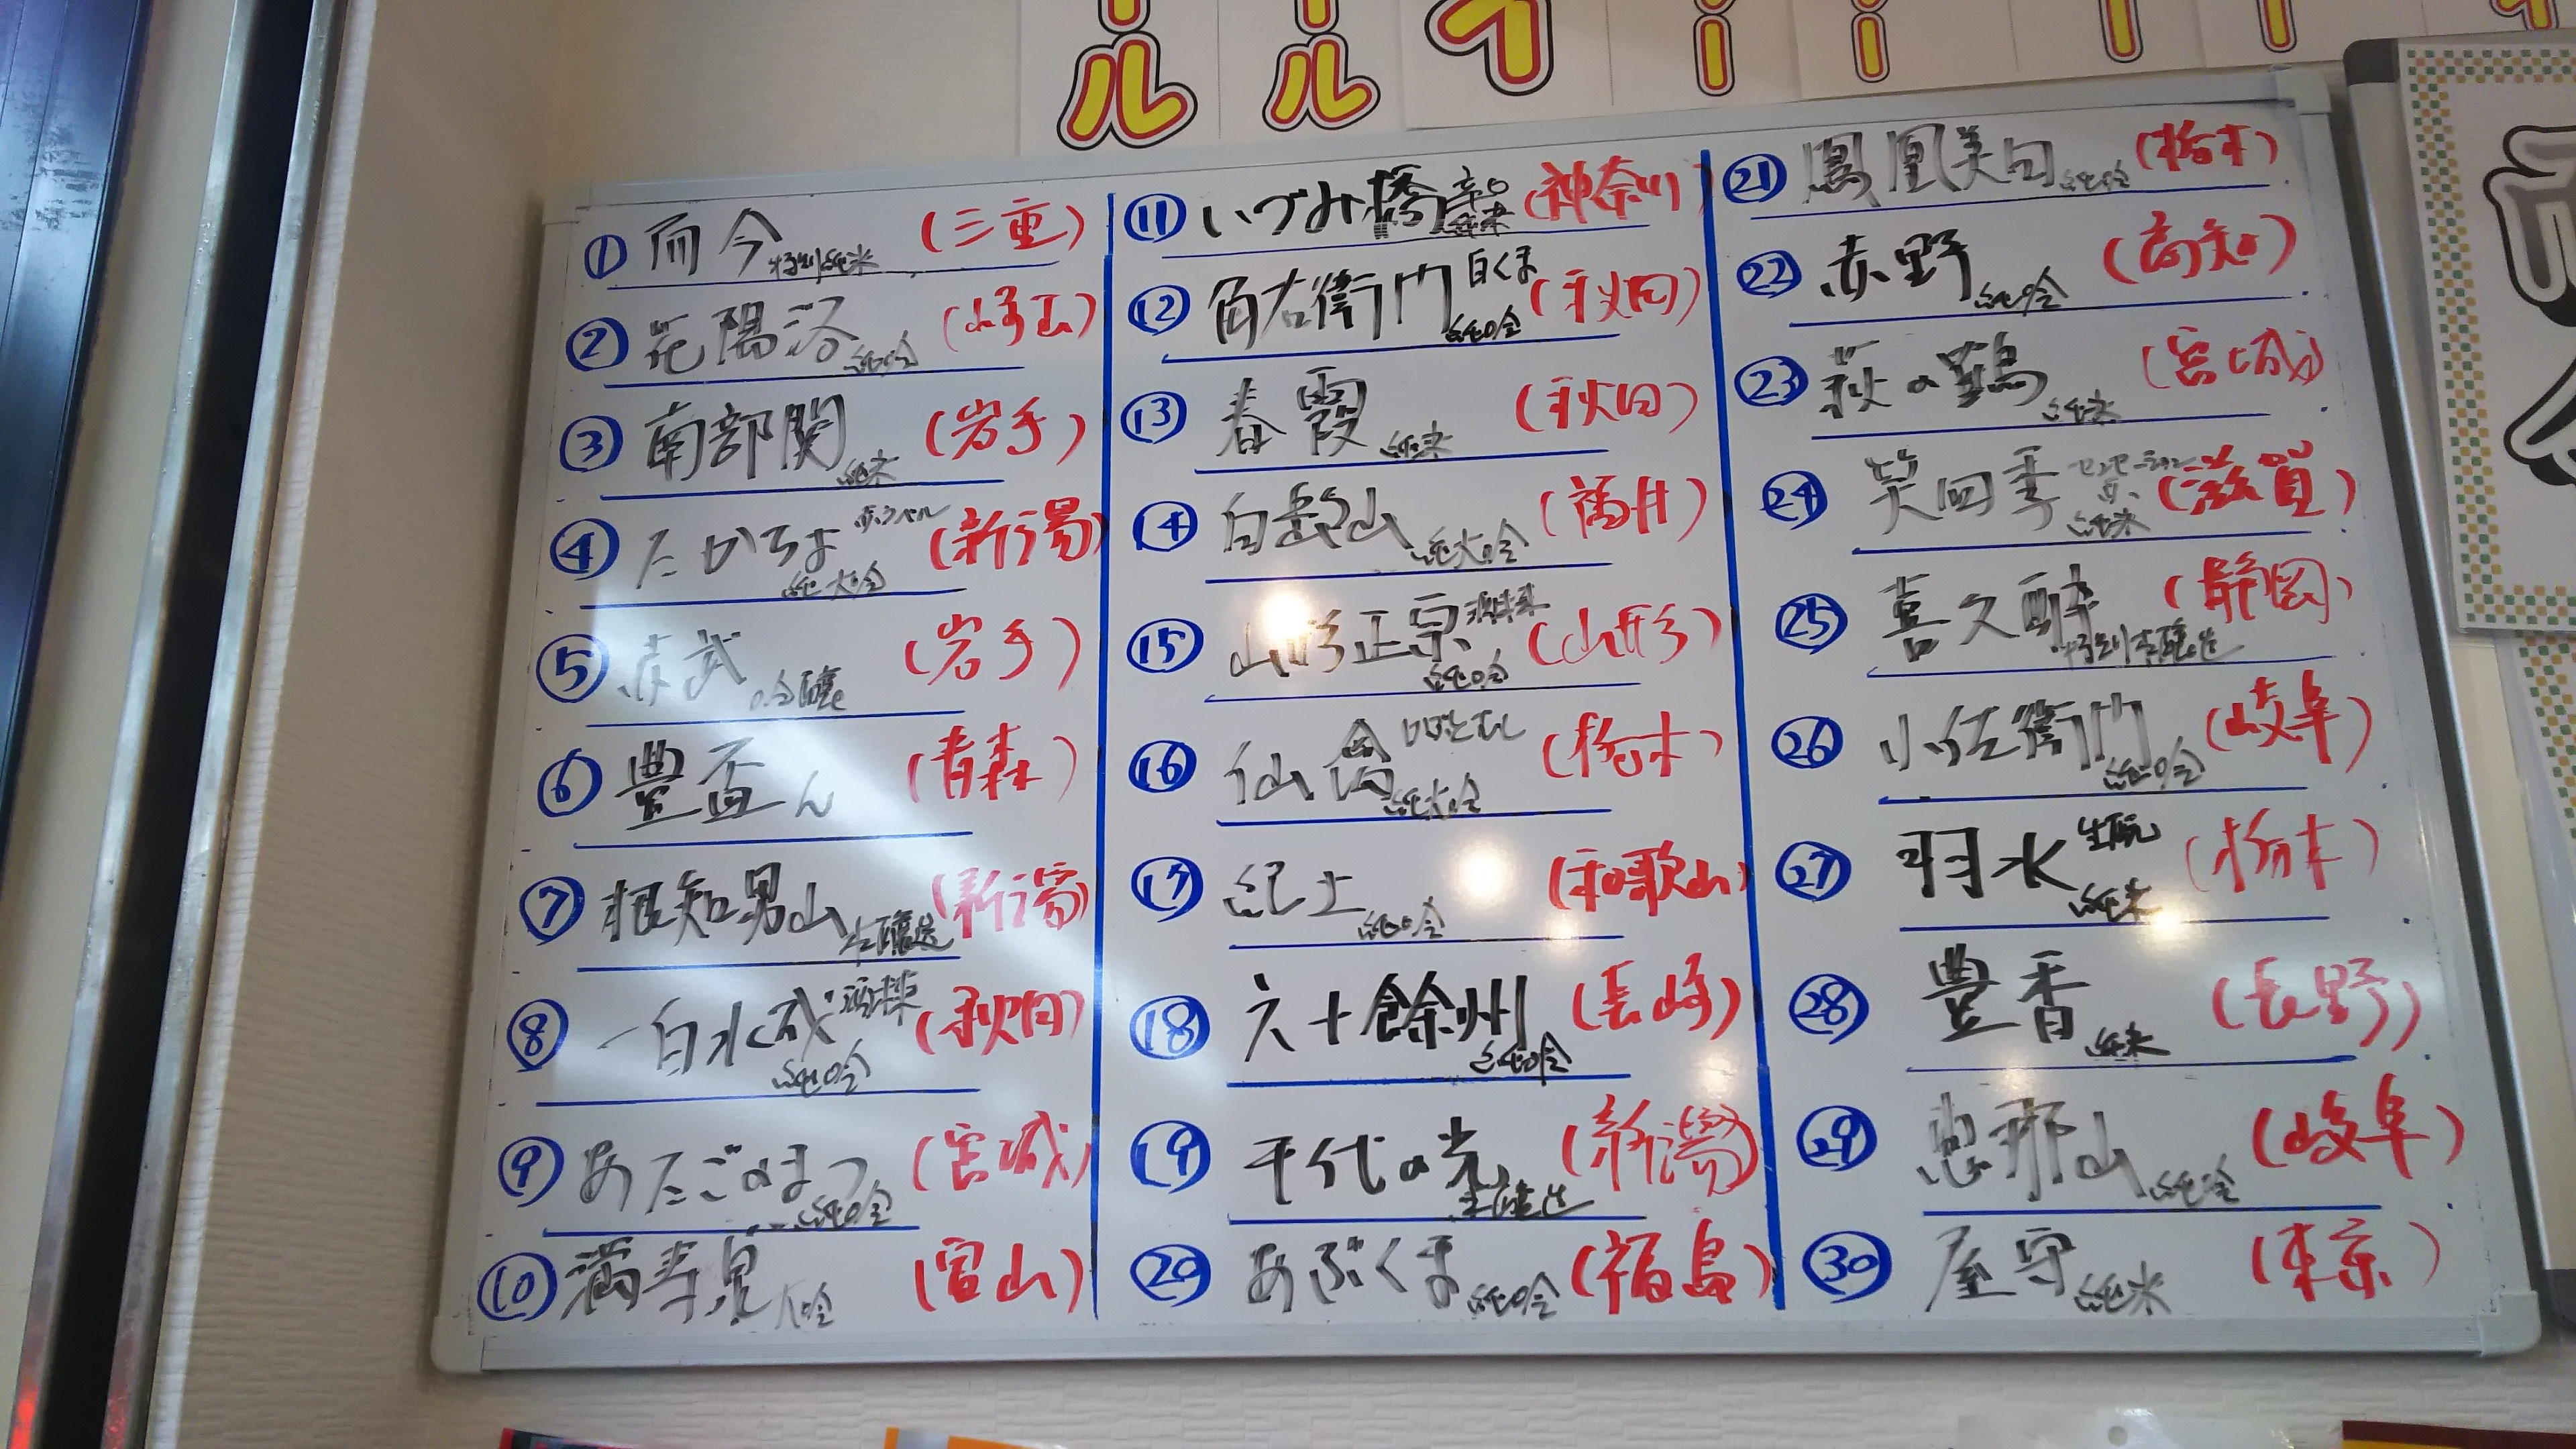 ール
ール
① 而今 特別純米 (三重)
② 花陽浴 純吟 (埼玉)
③ 南部関 純米 (岩手)
④ たかちよ 赤ラベル 純大吟 (新潟)
⑤ 赤武 吟醸 (岩手)
⑥ 豊盃 ん (青森)
⑦ 根知男山 本醸造 (新潟)
⑧ 一白水成 酒未来 純吟 (秋田)
⑨ あたごのまつ 純吟 (宮城)
⑩ 満寿泉 大吟 (富山)
⑪ いづみ橋 辛口 純米 (神奈川)
⑫ 角右衛門 白くま 純吟 (秋田)
⑬ 春霞 純米 (秋田)
⑭ 白岳山 純大吟 (福井)
⑮ 山形正宗 酒未来 純吟 (山形)
⑯ 仙禽 純大吟 (栃木)
⑰ 紀土 純吟 (和歌山)
⑱ 六十餘州 純吟 (長崎)
⑲ 千代の光 本醸造 (新潟)
⑳ あぶくま 純吟 (福島)
㉑ 鳳凰美田 純吟 (栃木)
㉒ 赤野 純吟 (高知)
㉓ 萩の鶴 純米 (宮城)
㉔ 笑四季 センセーション 純米 (滋賀)
㉕ 喜久酔 特別本醸造 (静岡)
㉖ 小左衛門 純吟 (岐阜)
㉗ 羽水 生酛 純米 (栃木)
㉘ 豊香 純米 (長野)
㉙ 恵那山 純吟 (岐阜)
㉚ 屋守 純米 (東京)